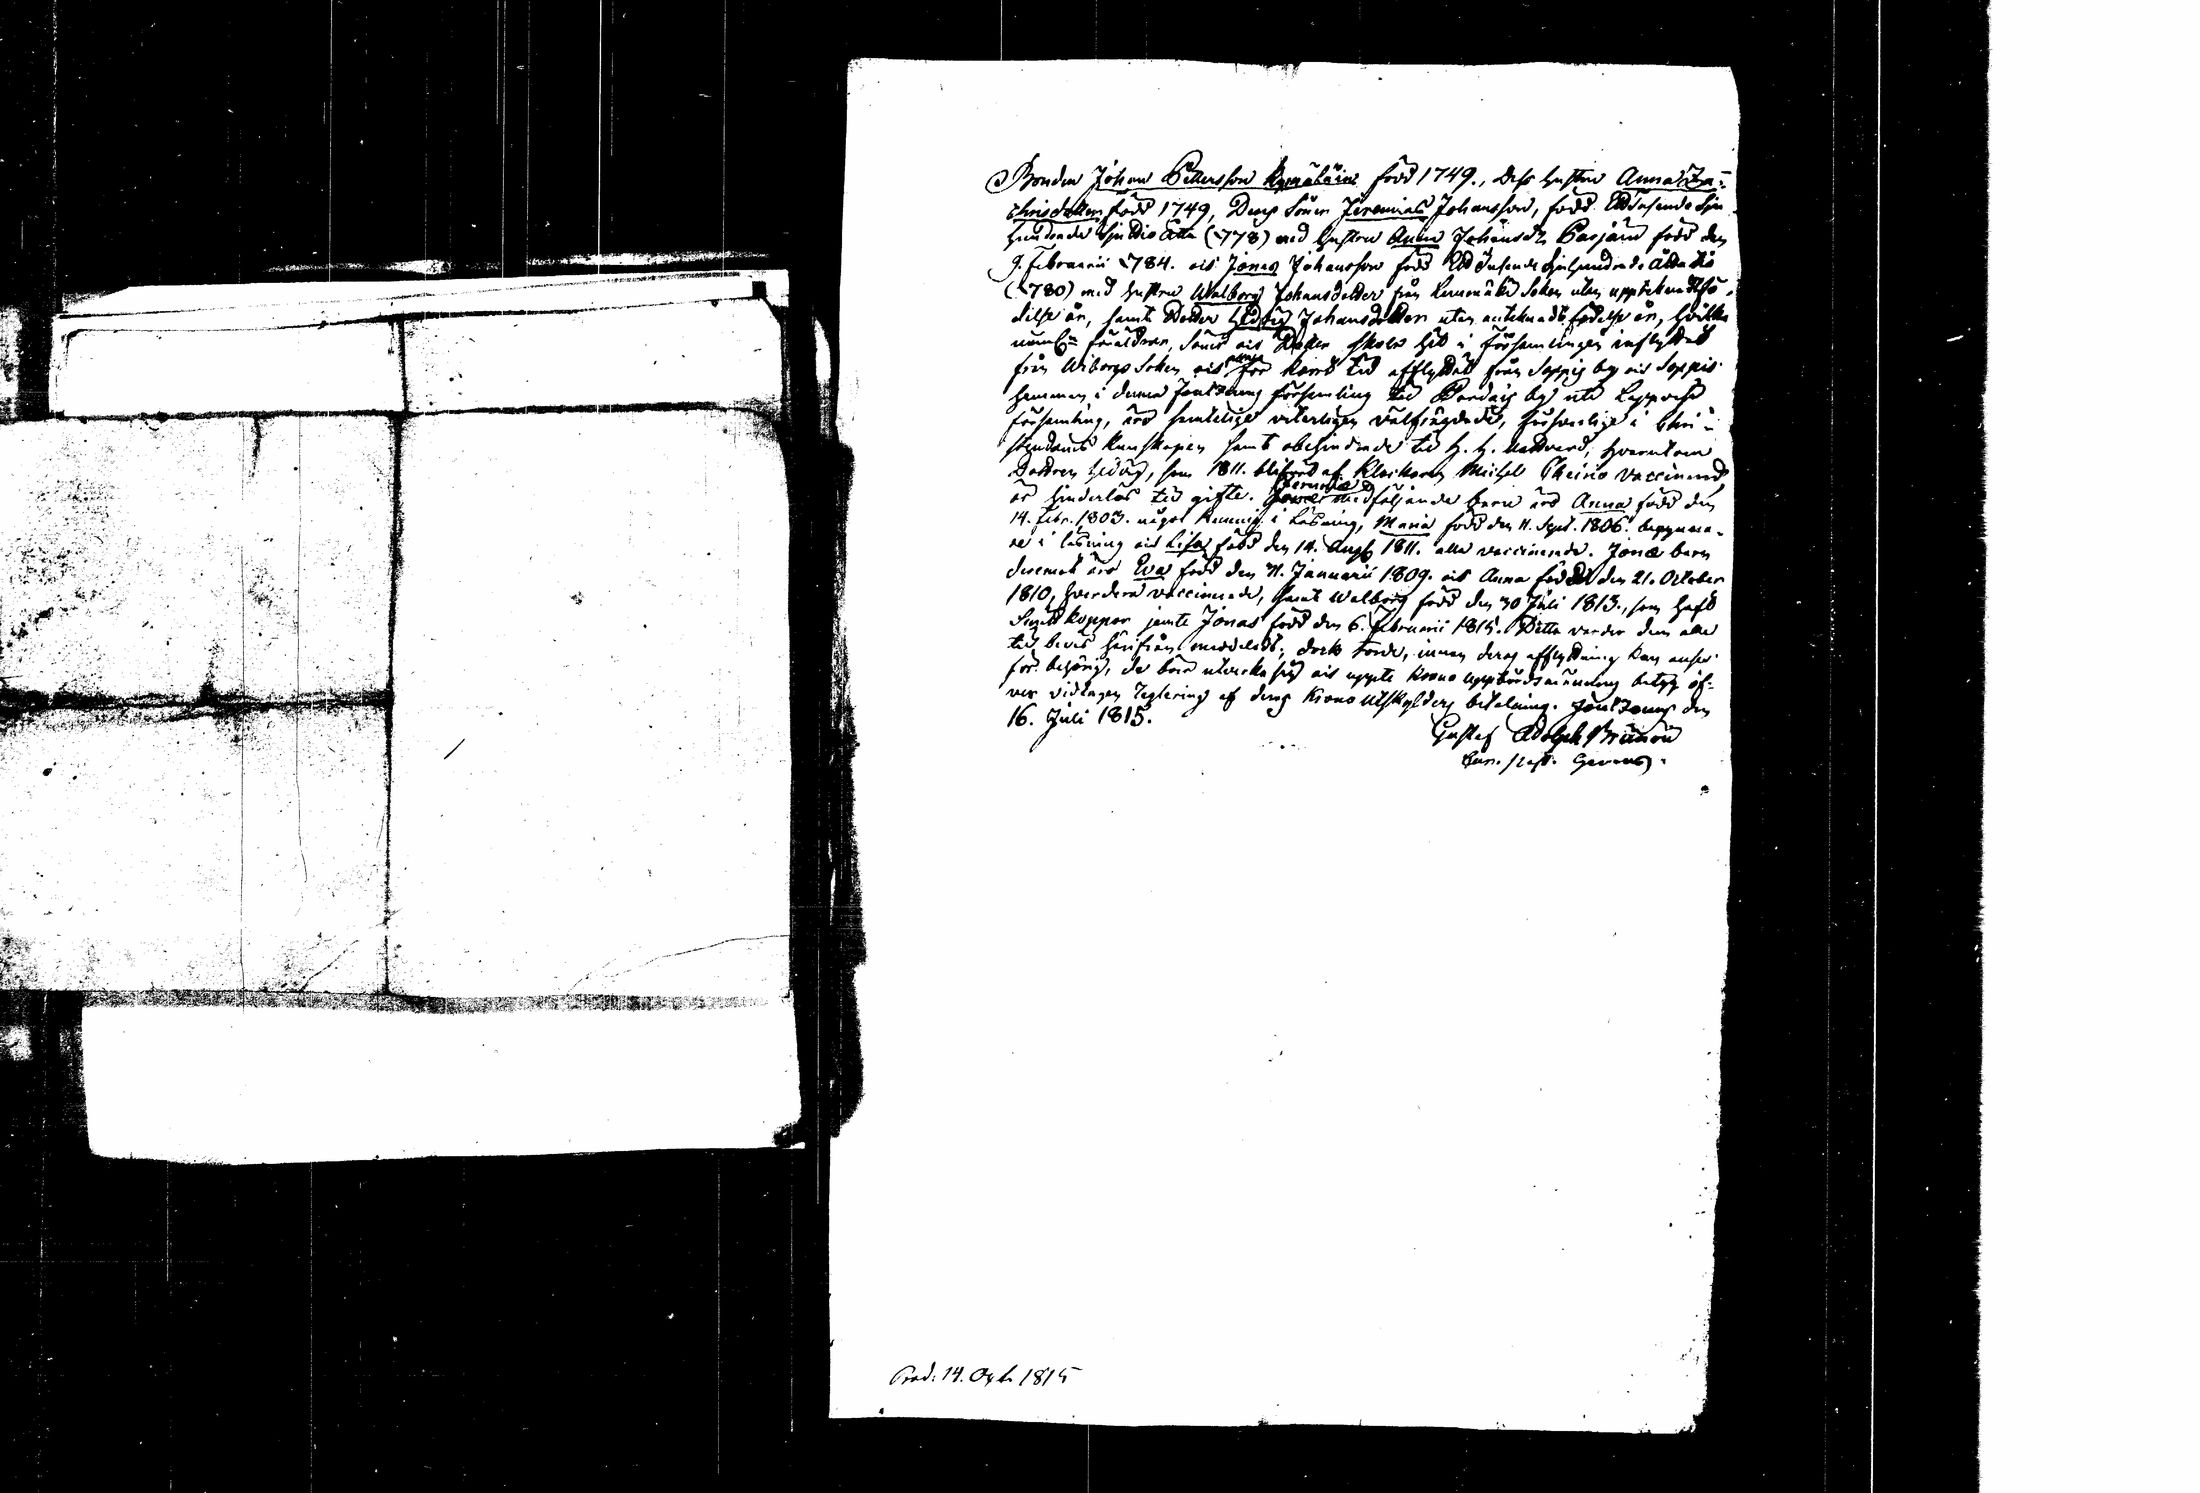 Bonden Johan Pettersson född 1749., dess hustru Anna Za-
chrisdotter född 1749, Deras Söner Jeremias Johansson, född Ettusende Sju
hundrade Sjuttio åtta (1778) med hustru Anna Johansdr Parjain född den
9. Februarii 1784. och Jonas Johansson född Ettusende Sjuhundrade åttatio
(1780) med hustru Walborg Johansdotter från Socken utan upptecknadt fö-
delse år, samt Dotter Hedvig Johansdotter utan antecknadt födelse år, hvilka
föräldrar, Söner och Dotter skola hit i Församlingen inflyttat
från Wiborgs Socken och för kort tid afflyttat från Soppis by och Soppis
hemman i denna församling till by uti
församling, äro samtelige välfrägdade, i Chri-
stendoms kunskapen samt obehindrade till H. H. Nattvard; hvarutom
Dottren Hedvig, som 1811. blifvit af Klockaren Michel vaccinerad,
är hinderlös till gifte. Jeremiæ medföljande barn äro Anna född den
14. Febr. 1803. något kunnig i Läsning, Maria född den 11. Sept. 1806. begynna-
re i läsning och Lisa född den 14. Aug. 1811. alla vaccinerade. Jonæ barn
deremot äro Eva född den 31. Januarii 1809. och Anna född den 21. October
1810, hvardera vaccinerade, samt Walborg född den 30 Juli 1813., som haft
koppor jemte Jonas född den 6. Februarii 1815. Detta varder dem alla
till bevis härifrån meddelat; dock torde, innan deras afflyttning kan anses
för behörig, de böra utverka sig och uppte Krono uppbördsmännens betyg öf-
ver vidtagen reglering af deras Krono Utskylders betalning. den
16. Juli 1815.
Gustaf Adolph
Prod: 14. Octb. 1815